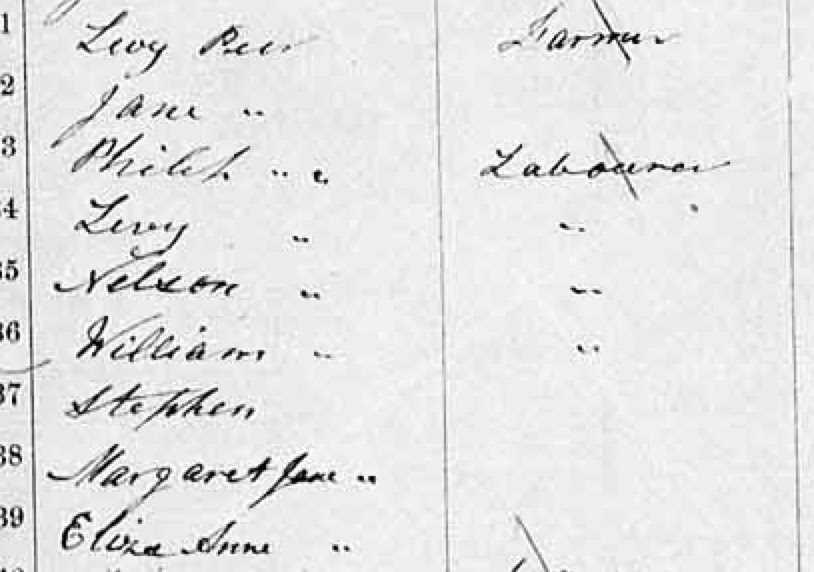 1 Levy Peer Farmer
2 Jane "
3 Philip " " Labourer
34 Levy " "
35 Nelson " "
36 William " "
37 Stephen
38 Margaret Jane "
39 Eliza Anne "